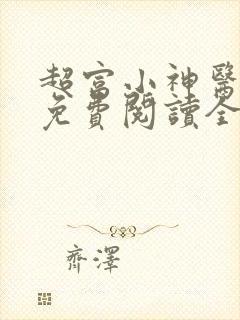 超富小神醫
免費閱讀全
齊澤